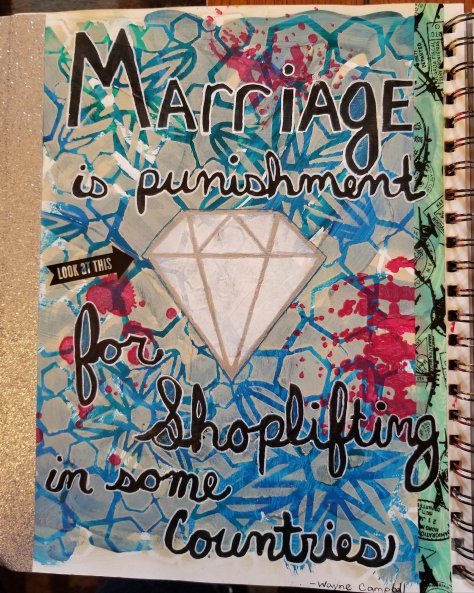 Marriage
is punishment
LOOK AT THIS
for
Shoplifting
in some
Countries
-Wayne Campbell